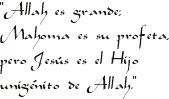 "Allah es grande;
Mahoma es su profeta,
pero Jesús es el Hijo
unigénito de Allah."